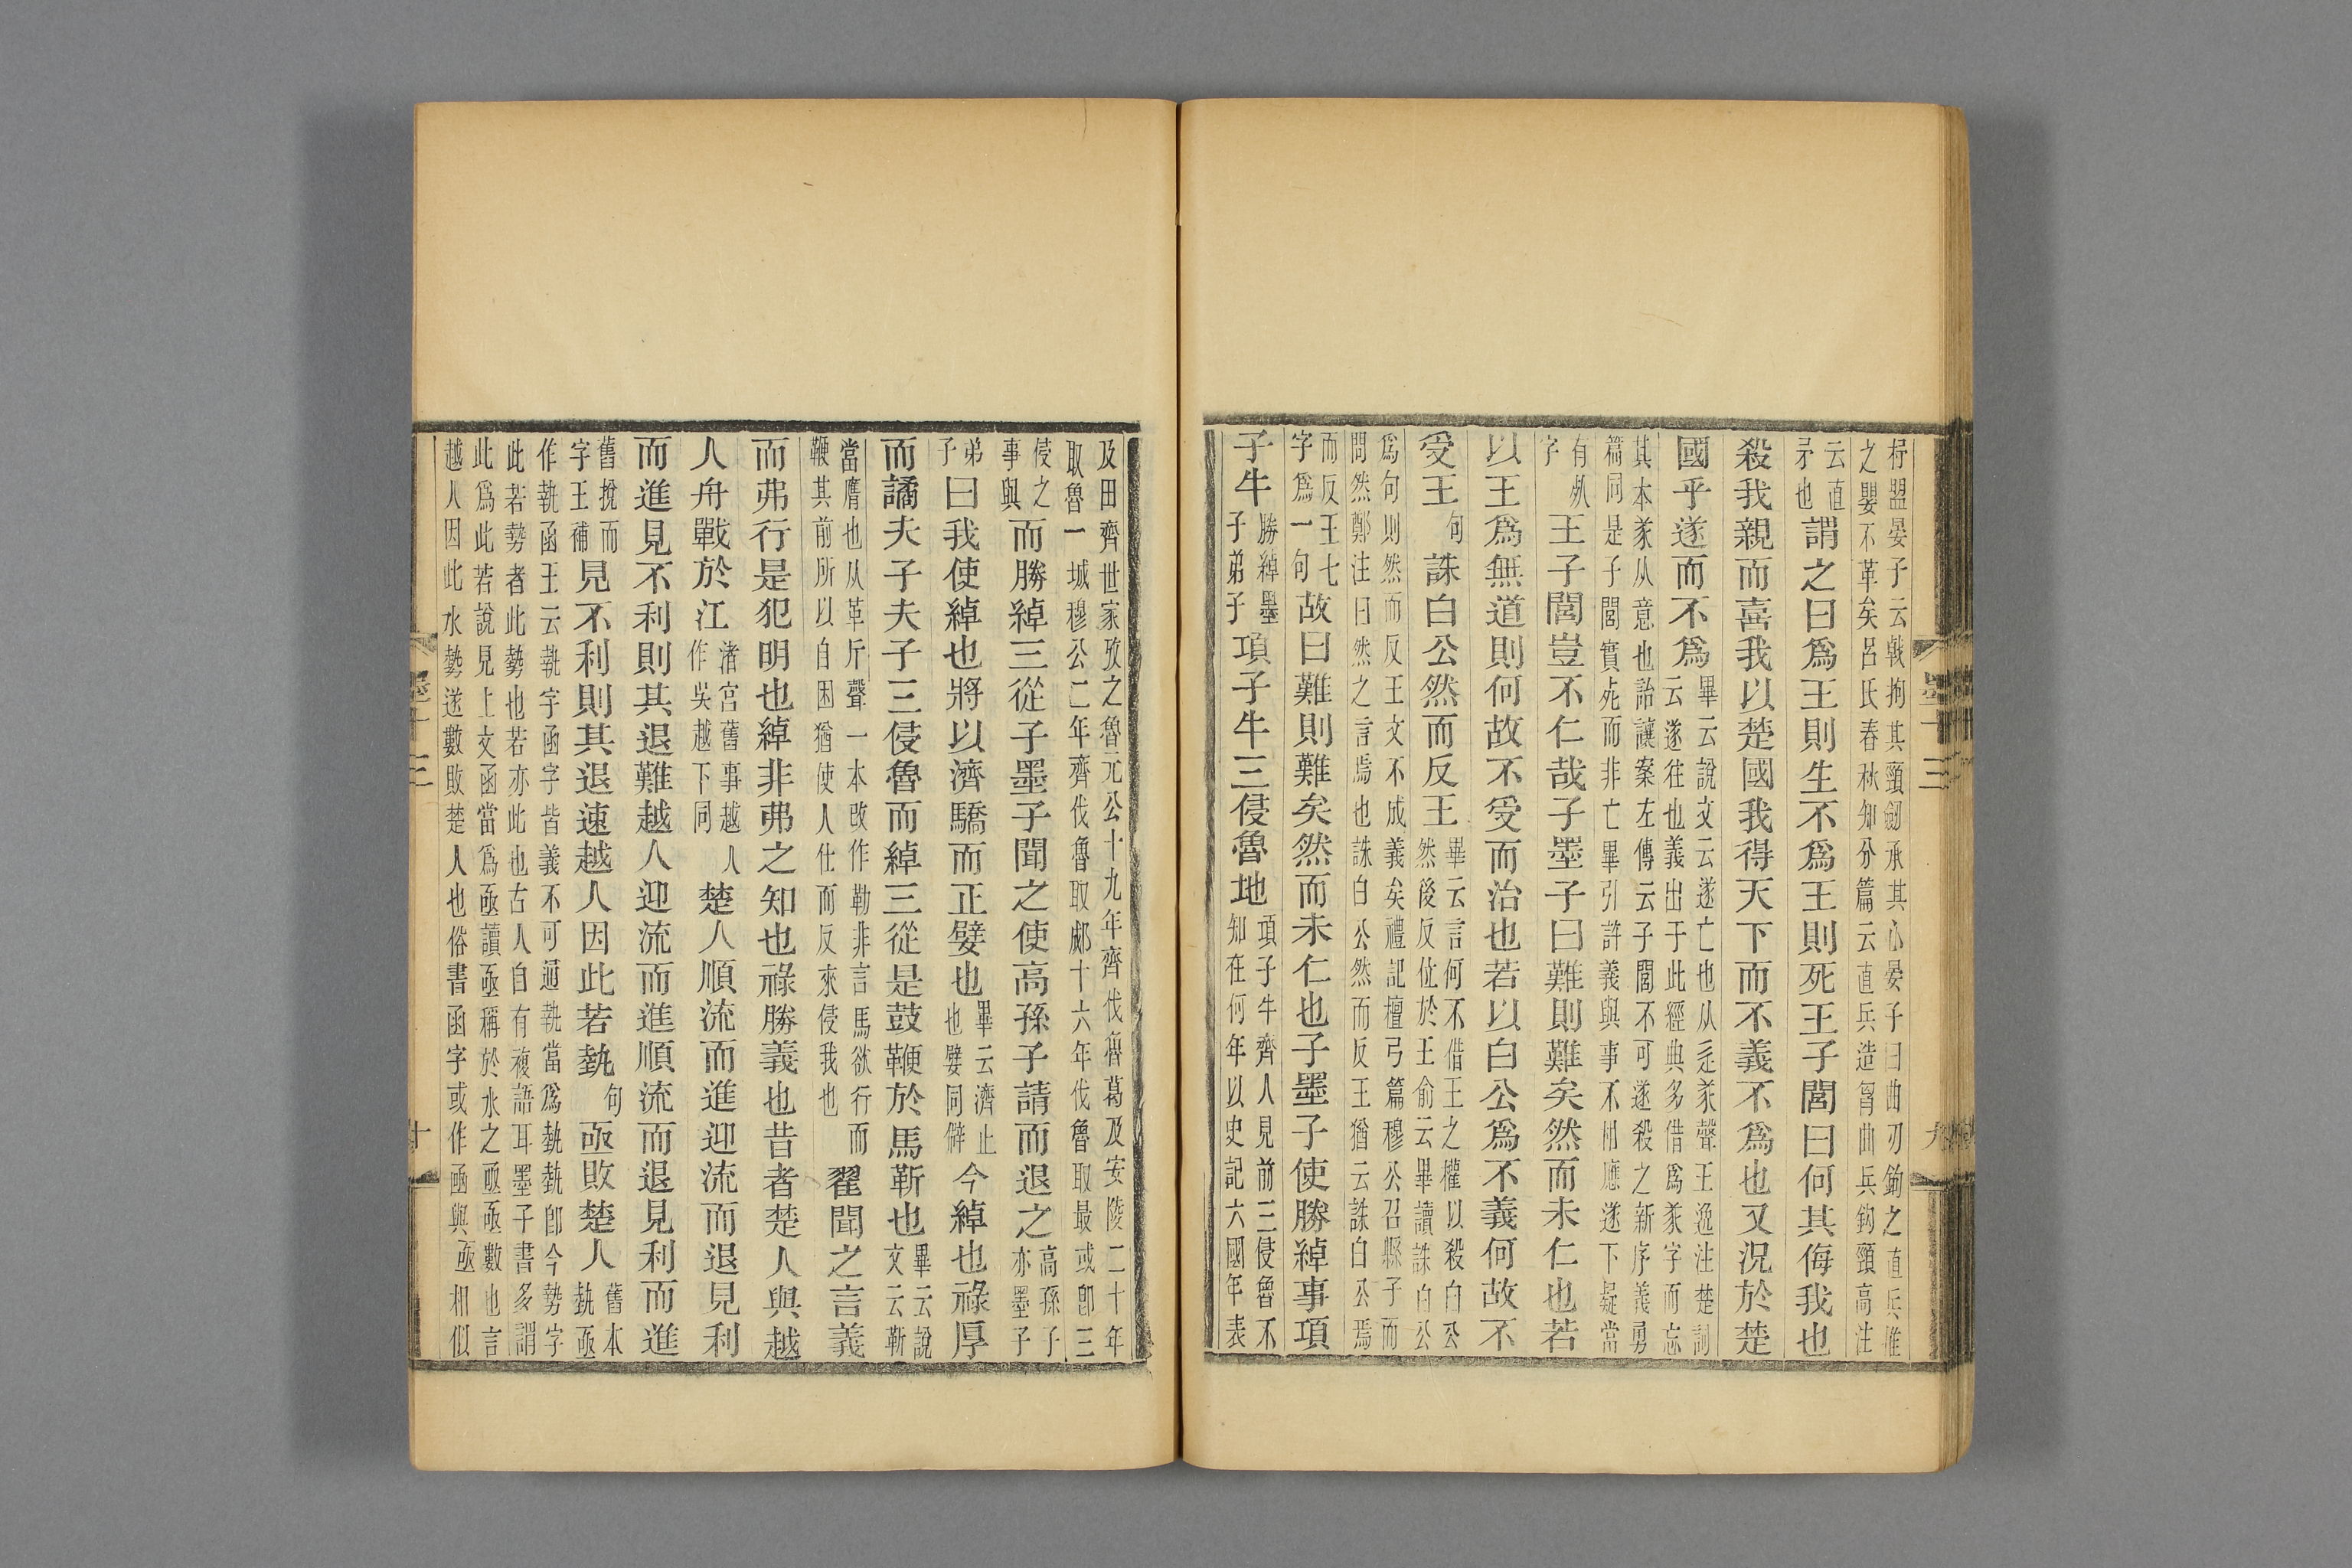 桮盟晏子云戟拘其頸劒承其心晏子曰曲刃鉤之直兵推
之嬰不革矣呂氏春秋知分篇云直兵造胷曲兵鉤頸高注
云直
矛也
謂之曰爲王則生不爲王則死王子閭曰何其侮我也
殺我親而喜我以楚國我得天下而不義不爲也又況於楚
國乎遂而不爲
畢云說文云遂亡也从辵㒸聲王逸注楚詞
云遂往也義出于此經典多借爲㒸字而忘
其本㒸从意也詒讓案左傳云子閭不可遂殺之新序義勇
篇同是子閭實死而非亡畢引許義與事不相應遂下疑當
有㱾
字
王子閭豈不仁哉子墨子曰難則難矣然而未仁也若
以王爲無道則何故不受而治也若以白公爲不義何故不
受王
句
誅白公然而反王
畢云言何不借王之權以殺白公
然後反位於王俞云畢讀誅白公
爲句則然而反王文不成義矣禮記檀弓篇穆公召縣子而
問然鄭注曰然之言焉也誅白公然而反王猶云誅白公焉
而反王七
字爲一句
故曰難則難矣然而未仁也子墨子使勝綽事項
子牛
勝綽墨
子弟子
項子牛三侵魯地
項子牛齊人見前三侵魯不
知在何年以史記六國年表
及田齊世家攷之魯元公十九年齊伐魯葛及安陵二十年
取魯一城穆公二年齊伐魯取郕十六年伐魯取最或卽三
侵之
事與
而勝綽三從子墨子聞之使高孫子請而退之
高孫子
亦墨子
弟
子
曰我使綽也將以濟驕而正嬖也
畢云濟止
也嬖同僻
今綽也祿厚
而譎夫子夫子三侵魯而綽三從是鼓鞭於馬靳也
畢云說
文云靳
當膺也从革斤聲一本改作勒非言馬欲行而
鞭其前所以自困猶使人仕而反來侵我也
翟聞之言義
而弗行是犯明也綽非弗之知也祿勝義也昔者楚人與越
人舟戰於江
渚宮舊事越人
作吳越下同
楚人順流而進迎流而退見利
而進見不利則其退難越人迎流而進順流而退見利而進
舊挩而
字王補
見不利則其退速越人因此若埶
句
亟敗楚人
舊本
埶亟
作執函王云執字函字皆義不可通執當爲埶埶卽今勢字
此若勢者此勢也若亦此也古人自有複語耳墨子書多謂
此爲此若說見上文函當爲亟讀亟稱於水之亟亟數也言
越人因此水勢遂數敗楚人也俗書函字或作凾與亟相似
墨十三
九
墨十三
十